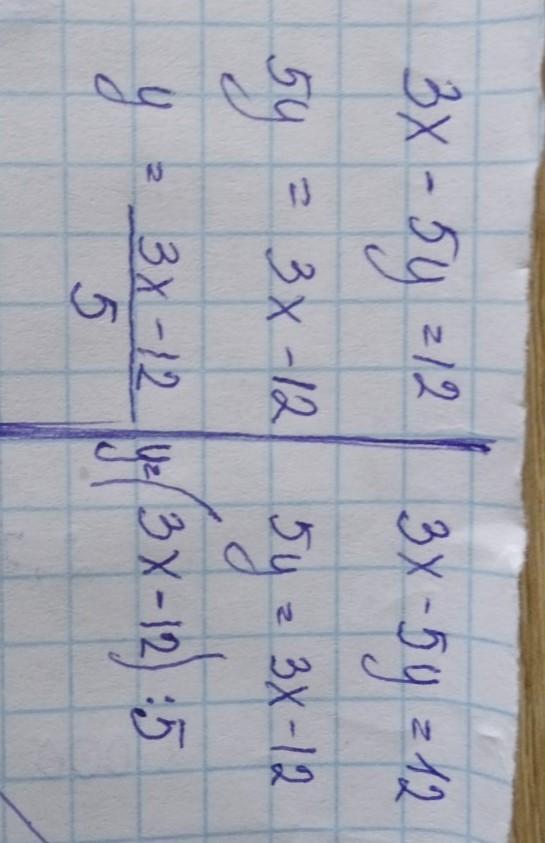 3x - 5y = 12
5y = 3x - 12
y = \frac{3x - 12}{5}
3x - 5y = 12
5y = 3x - 12
y = (3x - 12) : 5